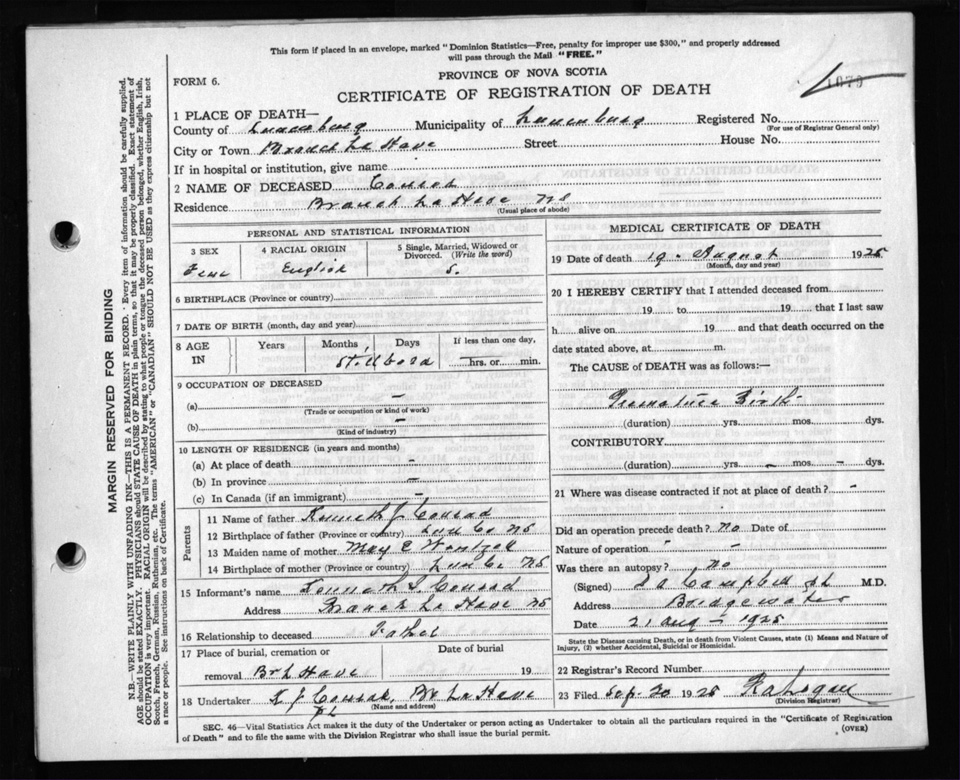 This form if placed in an envelope, marked "Dominion Statistics—Free, penalty for improper use $300," and properly addressed
will pass through the Mail "FREE."
FORM 6.
PROVINCE OF NOVA SCOTIA
1079
CERTIFICATE OF REGISTRATION OF DEATH
1 PLACE OF DEATH—
County of Lunenburg Municipality of Lunenburg Registered No.
(For use of Registrar General only)
City or Town Branch La Have Street House No.
If in hospital or institution, give name
2 NAME OF DECEASED Conrad
Residence Branch La Have NS
(Usual place of abode)
PERSONAL AND STATISTICAL INFORMATION
3 SEX 4 RACIAL ORIGIN 5 Single, Married, Widowed or Divorced. (Write the word)
Feme English S.
6 BIRTHPLACE (Province or country)
7 DATE OF BIRTH (month, day and year)
8 AGE IN Years Months Days If less than one day,
Stillborn hrs. or min.
9 OCCUPATION OF DECEASED
(a) –
(Trade or occupation or kind of work)
(b) –
(Kind of industry)
10 LENGTH OF RESIDENCE (in years and months)
(a) At place of death –
(b) In province –
(c) In Canada (if an immigrant) –
Parents
11 Name of father Kenneth J Conrad
12 Birthplace of father (Province or country) Lun Co NS
13 Maiden name of mother May E Wentzell
14 Birthplace of mother (Province or country) Lun Co. NS
15 Informant's name Kenneth J Conrad
Address Branch La Have NS
16 Relationship to deceased Father
17 Place of burial, cremation or Date of burial
removal Br L Have 19
18 Undertaker K J Conrad, Br La Have
(Name and address)
MEDICAL CERTIFICATE OF DEATH
19 Date of death 19 - August 1925
(Month, day and year)
20 I HEREBY CERTIFY that I attended deceased from
19 to 19 that I last saw
h alive on 19 and that death occurred on the
date stated above, at m.
The CAUSE of DEATH was as follows:—
Premature Birth
(duration) yrs. mos. dys.
CONTRIBUTORY
(duration) yrs. – mos. – dys.
21 Where was disease contracted if not at place of death? –
Did an operation precede death? no Date of
Nature of operation
Was there an autopsy? no
(Signed) D A Campbell M.D.
Address Bridgewater
Date 21 Aug – 1925
State the Disease causing Death, or in death from Violent Causes, state (1) Means and Nature of
Injury, (2) whether Accidental, Suicidal or Homicidal.
22 Registrar's Record Number
23 Filed Sep. 30 1925
(Division Registrar)
SEC. 46—Vital Statistics Act makes it the duty of the Undertaker or person acting as Undertaker to obtain all the particulars required in the "Certificate of Registration
of Death" and to file the same with the Division Registrar who shall issue the burial permit.
(OVER)
MARGIN RESERVED FOR BINDING
N.B.—WRITE PLAINLY WITH UNFADING INK—THIS IS A PERMANENT RECORD. Every item of information should be carefully supplied.
AGE should be stated EXACTLY. PHYSICIANS should STATE CAUSE OF DEATH in plain terms, so that it may be properly classified. Exact statement of
OCCUPATION is very important. RACIAL ORIGIN will be described by stating to what people or tongue the deceased person belonged, whether English, Irish,
Scotch, French, German, Russian, Ruthenian, etc. The terms "AMERICAN" or "CANADIAN" SHOULD NOT BE USED as they express citizenship but not
a race or people. See instructions on back of Certificate.